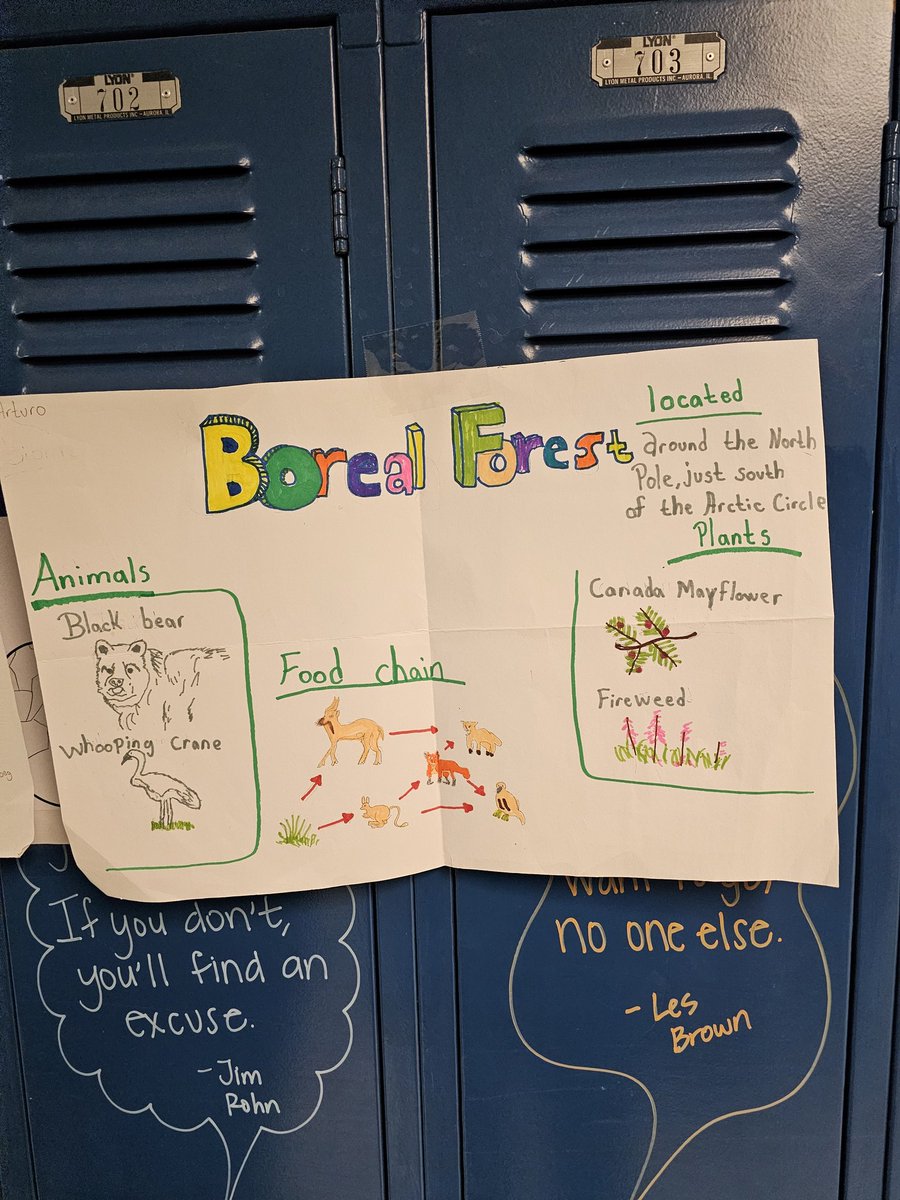 LYON
702
LYON METAL PRODUCTS INC - AURORA, IL
LYON
703
LYON METAL PRODUCTS INC - AURORA, IL
Arturo
Boreal Forest
located
around the North
Pole, just south
of the Arctic Circle
Plants
Canada Mayflower
Fireweed
Animals
Black bear
Whooping Crane
Food chain
If you don't,
you'll find an
excuse.
-Jim
Rohn
want to go,
no one else.
-Les
Brown